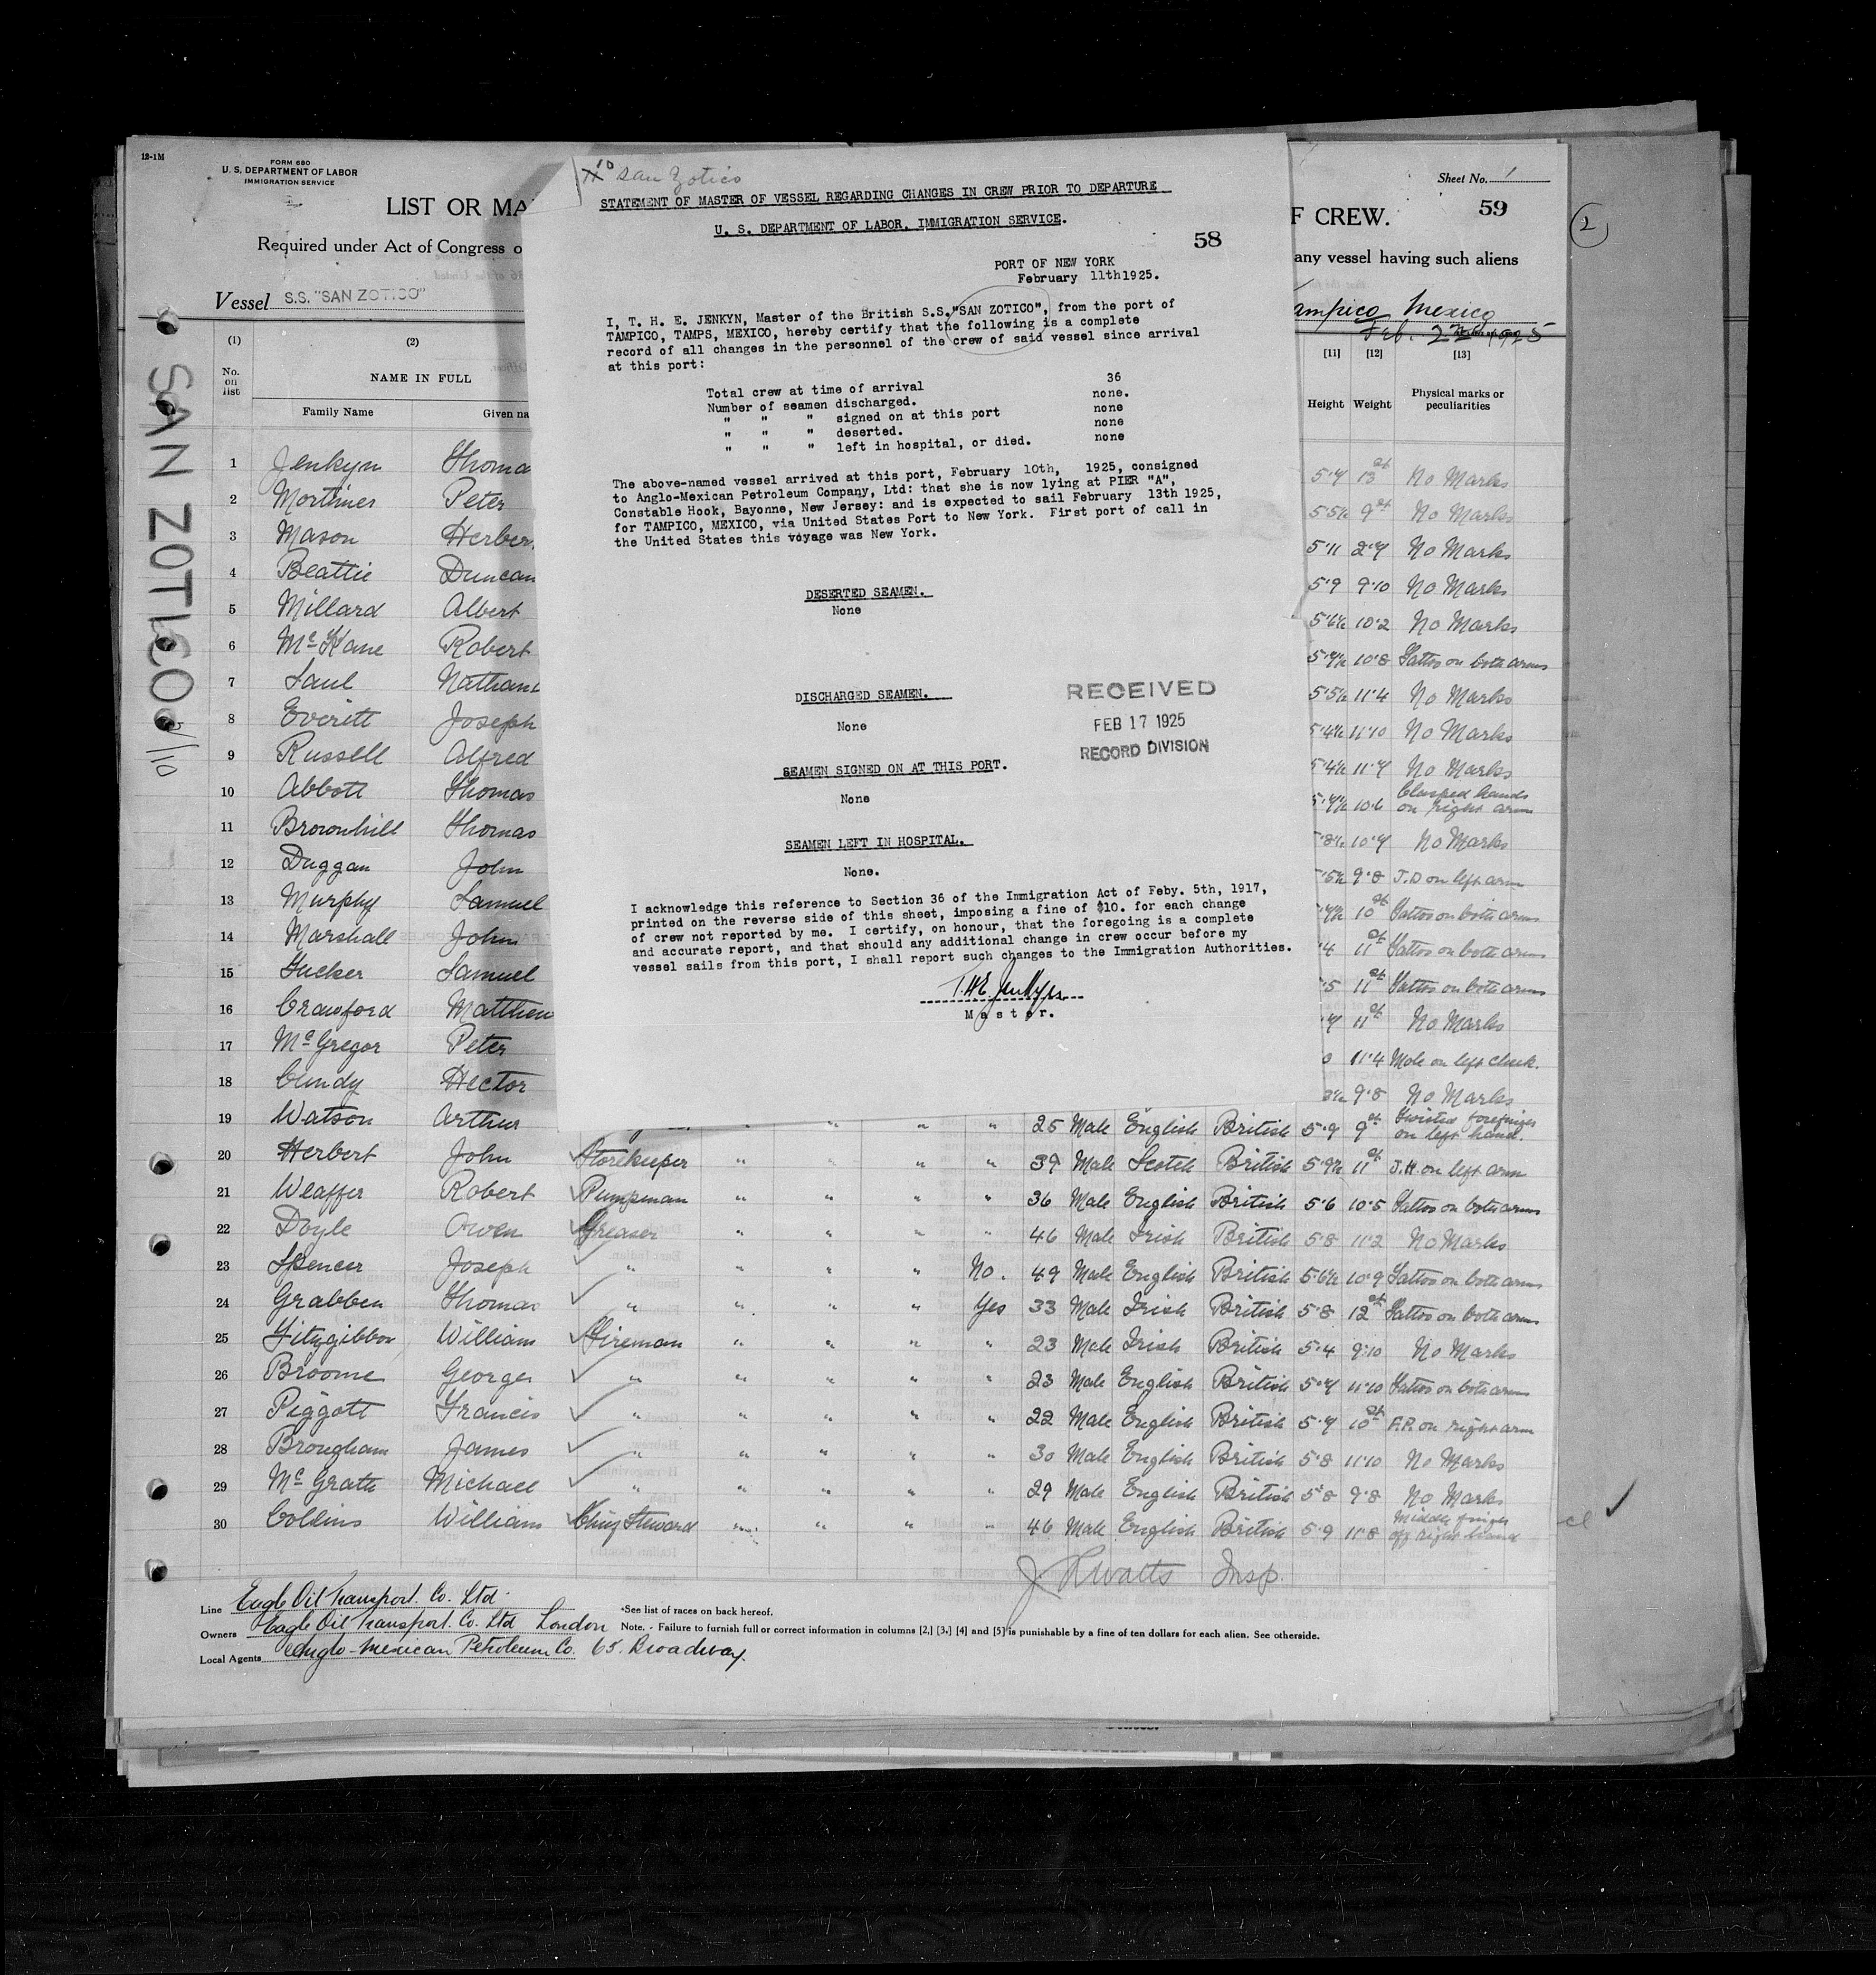 12-1M
FORM 680
U. S. DEPARTMENT OF LABOR
IMMIGRATION SERVICE
LIST OR MA
Required under Act of Congress o
Vessel S.S. "SAN ZOTICO"
SAN ZOTICO
2/10
(1) (2)
No. on list
NAME IN FULL
Family Name Given na
1 Jenkyn Thoma
2 Mortimer Peter
3 Mason Herber
4 Beattie Duncan
5 Millard Albert
6 McKane Robert
7 Saul Nathani
8 Everitt Joseph
9 Russell Alfred
10 Abbott Thomas
11 Brownhill Thomas
12 Duggan John
13 Murphy Samuel
14 Marshall John
15 Tucker Samuel
16 Crawford Matthew
17 McGregor Peter
18 Cundy Hector
19 Watson Arthur
San Zotico
STATEMENT OF MASTER OF VESSEL REGARDING CHANGES IN CREW PRIOR TO DEPARTURE
U. S. DEPARTMENT OF LABOR, IMMIGRATION SERVICE.
58
PORT OF NEW YORK
February 11th1925.
I, T. H. E. JENKYN, Master of the British S.S."SAN ZOTICO", from the port of
TAMPICO, TAMPS, MEXICO, hereby certify that the following is a complete
record of all changes in the personnel of the crew of said vessel since arrival
at this port:
Total crew at time of arrival 36
Number of seamen discharged. none.
" " " signed on at this port none
" " " deserted. none
" " " left in hospital, or died. none
The above-named vessel arrived at this port, February 10th, 1925, consigned
to Anglo-Mexican Petroleum Company, Ltd: that she is now lying at PIER "A",
Constable Hook, Bayonne, New Jersey: and is expected to sail February 13th 1925,
for TAMPICO, MEXICO, via United States Port to New York. First port of call in
the United States this voyage was New York.
DESERTED SEAMEN.
None
DISCHARGED SEAMEN.
None
RECEIVED
FEB 17 1925
RECORD DIVISION
SEAMEN SIGNED ON AT THIS PORT.
None
SEAMEN LEFT IN HOSPITAL.
None.
I acknowledge this reference to Section 36 of the Immigration Act of Feby. 5th, 1917,
printed on the reverse side of this sheet, imposing a fine of $10. for each change
of crew not reported by me. I certify, on honour, that the foregoing is a complete
and accurate report, and that should any additional change in crew occur before my
vessel sails from this port, I shall report such changes to the Immigration Authorities.
T.H.E. Jenkyn
Master.
Sheet No. 1
F CREW. 59
2
any vessel having such aliens
ampico Mexico
Feb. 22nd 1925
[11] [12] [13]
Height Weight Physical marks or peculiarities
5·7 13st No Marks
5·5½ 9st No Marks
5·11 2·7 No Marks
5·9 9·10 No Marks
5·6½ 10·2 No Marks
5·7½ 10·8 Tattoo on both arms
5·5½ 11·4 No Marks
5·4½ 11·10 No Marks
5·4½ 11·7 No Marks
5·7½ 10·6 Clasped hands on right arm
·8½ 10·7 No Marks
·5½ 9·8 J.D on left arm
·7½ 10st Tattoo on both arms
·4 11st Tattoo on both arms
·5 11st Tattoo on both arms
·7 11st No Marks
0 11·4 Mole on left cheek.
9·8 No Marks
" " " 25 Male English British 5·9 9st Twisted forefinger on left hand.
20 Herbert John Storekeeper " " " " 39 Male Scotch British 5·9½ 11st J.H. on left arm
21 Weaffer Robert Pumpman " " " " 36 Male English British 5·6 10·5 Tattoo on both arms
22 Doyle Owen Greaser " " " " 46 Male Irish British 5·8 11·2 No Marks
23 Spencer Joseph " " " " No. 49 Male English British 5·6½ 10·9 Tattoo on both arms
24 Grabben Thomas " " " " Yes 33 Male Irish British 5·8 12st Tattoo on both arms
25 Fitzgibbon William Fireman " " " " 23 Male Irish British 5·4 9·10 No Marks
26 Broome George " " " " " 23 Male English British 5·7 11·10 Tattoo on both arms
27 Piggott Francis " " " " " 22 Male English British 5·7 10st F.P. on right arm
28 Brougham James " " " " " 30 Male English British 5·8 11·10 No Marks
29 McGrath Michael " " " " " 29 Male English British 5·8 9·8 No Marks
30 Collins William Chief Steward " " " " 46 Male English British 5·9 11·8 Middle finger off right hand
Watts Insp.
Line Eagle Oil Transport. Co. Ltd
Owners Eagle Oil Transport. Co. Ltd London
Local Agents Anglo-Mexican Petroleum Co. 65. Broadway.
*See list of races on back hereof.
Note. - Failure to furnish full or correct information in columns [2,] [3,] [4] and [5] is punishable by a fine of ten dollars for each alien. See otherside.